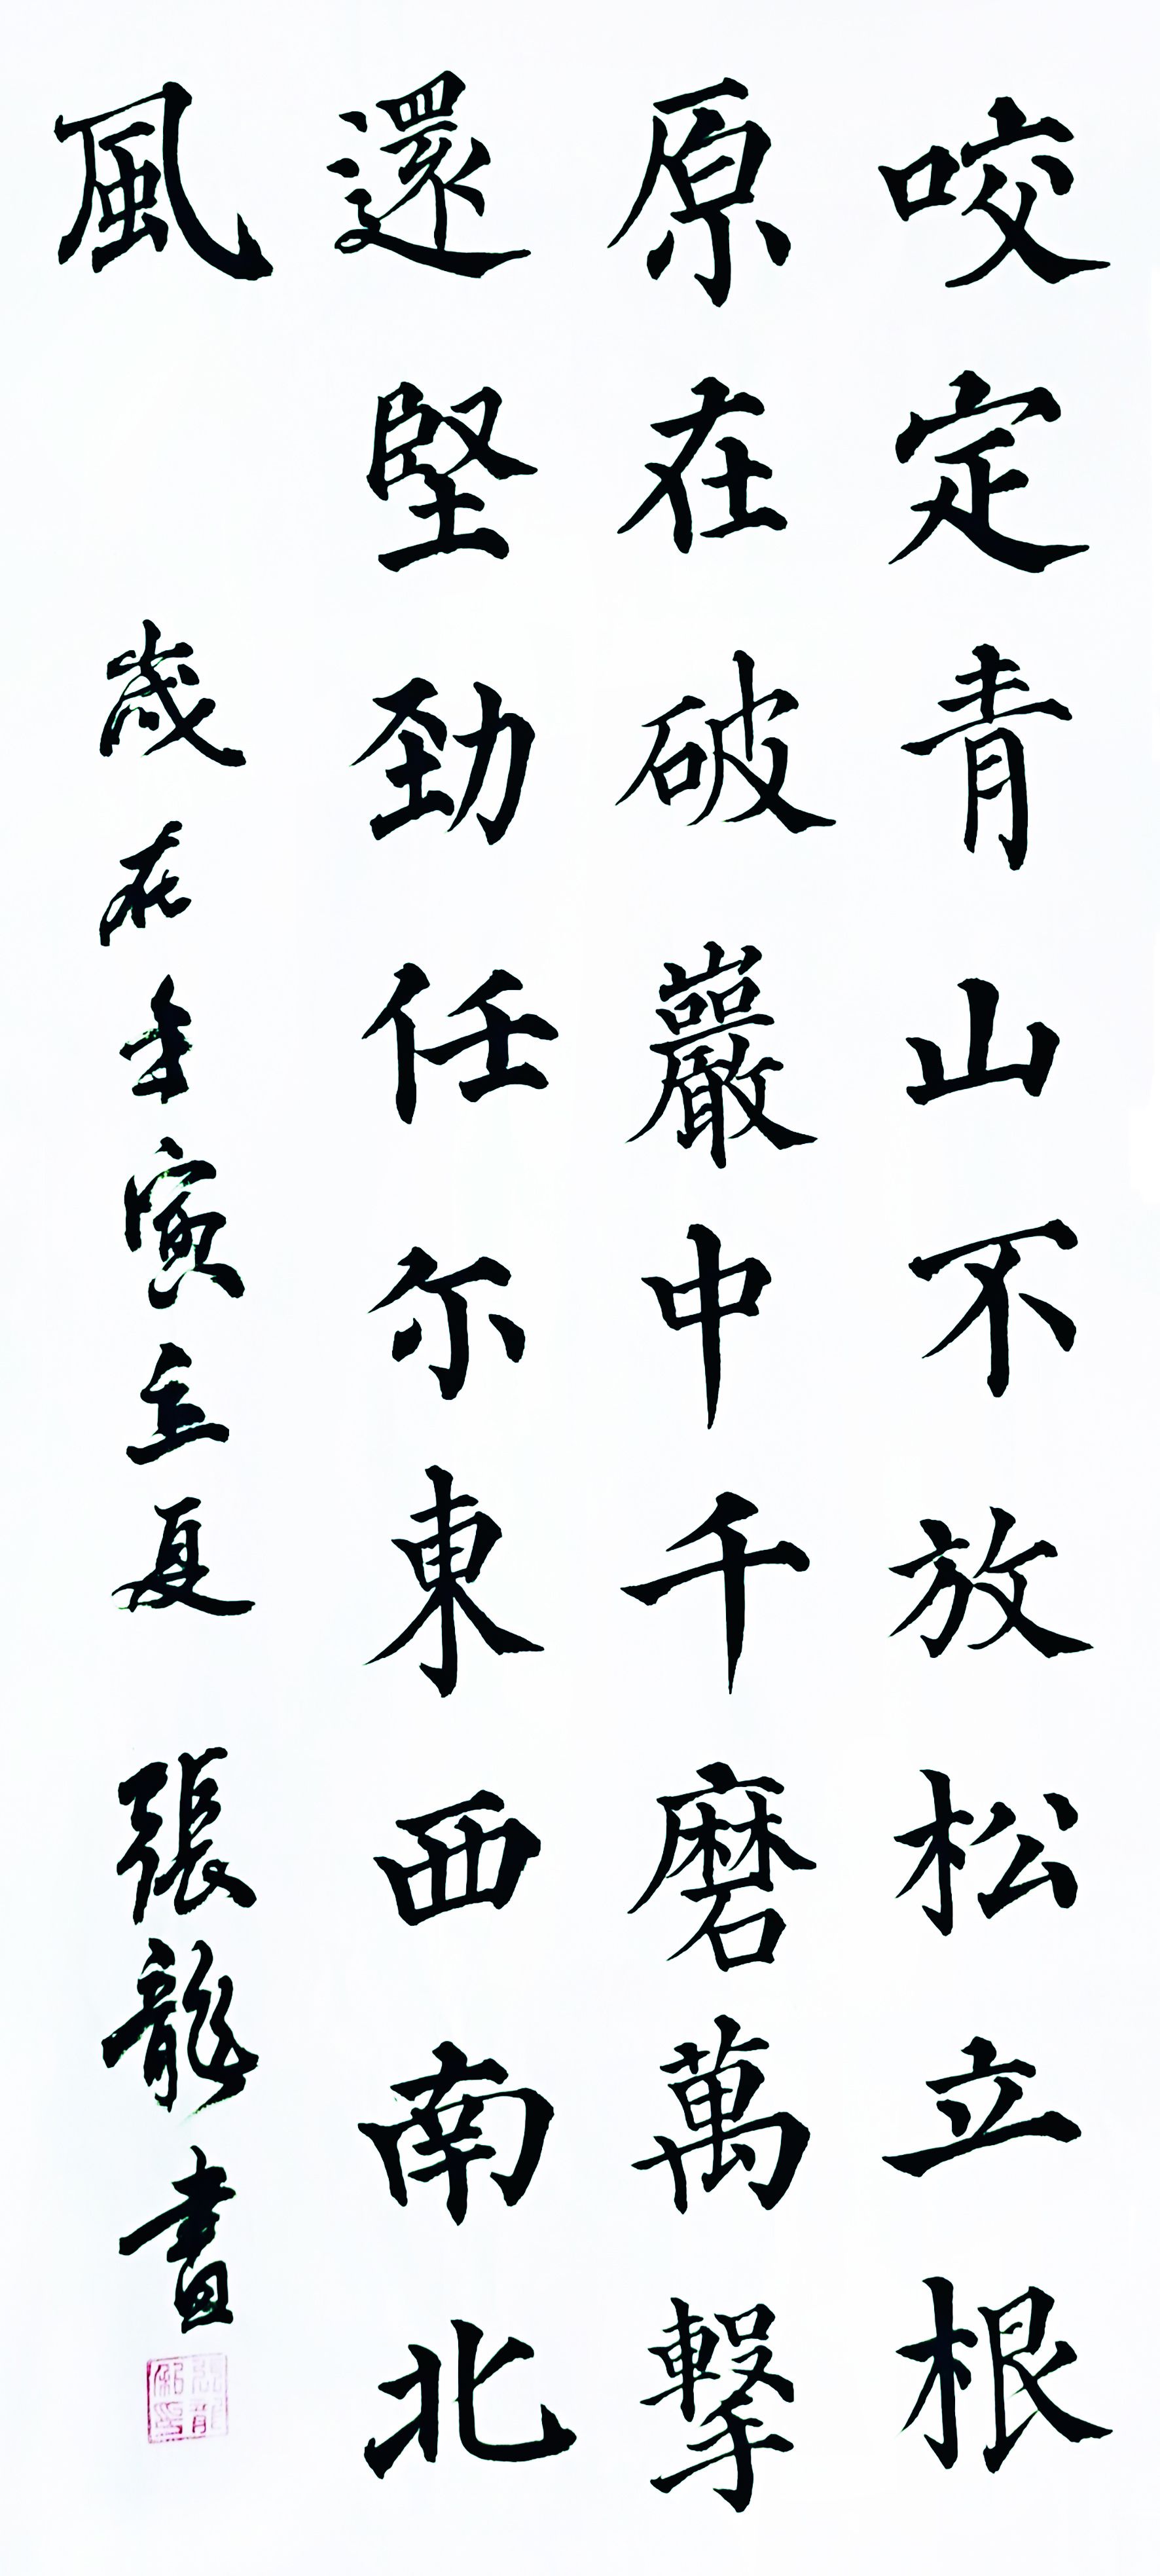 咬定青山不放松立根
原在破巖中千磨萬擊
還堅勁任尔東西南北
風
歲在壬寅立夏
張龍書